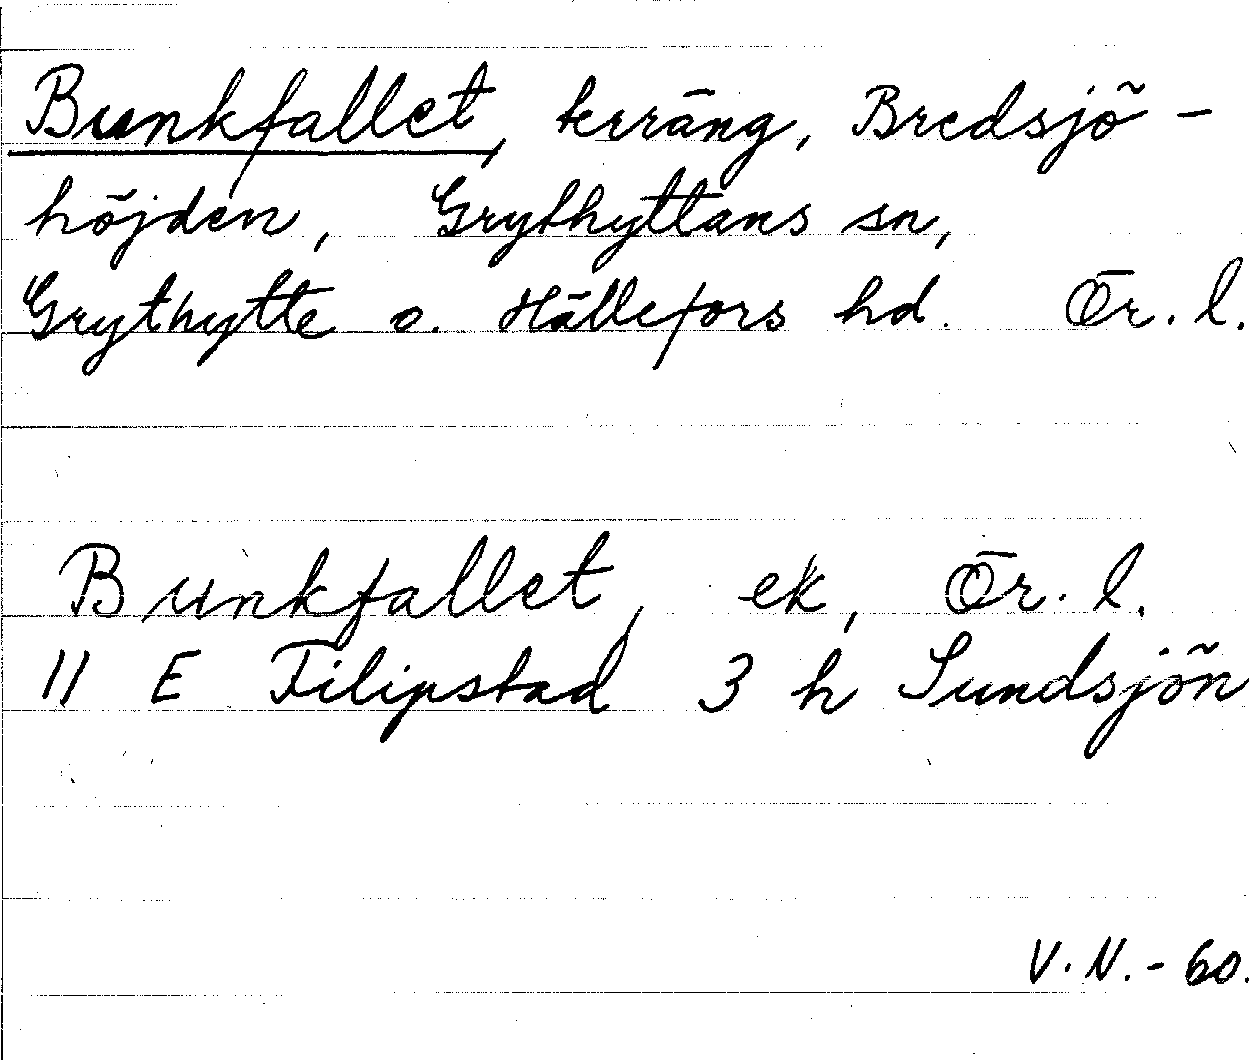 Bunkfallet, terräng, Bredsjö-
höjden, Grythyttans sn,
Grythytte o. Hällefors hd. Ör. l.
Bunkfallet, ek, Ör. l.
11 E Filipstad 3 h Sundsjön
V. N. - 60.